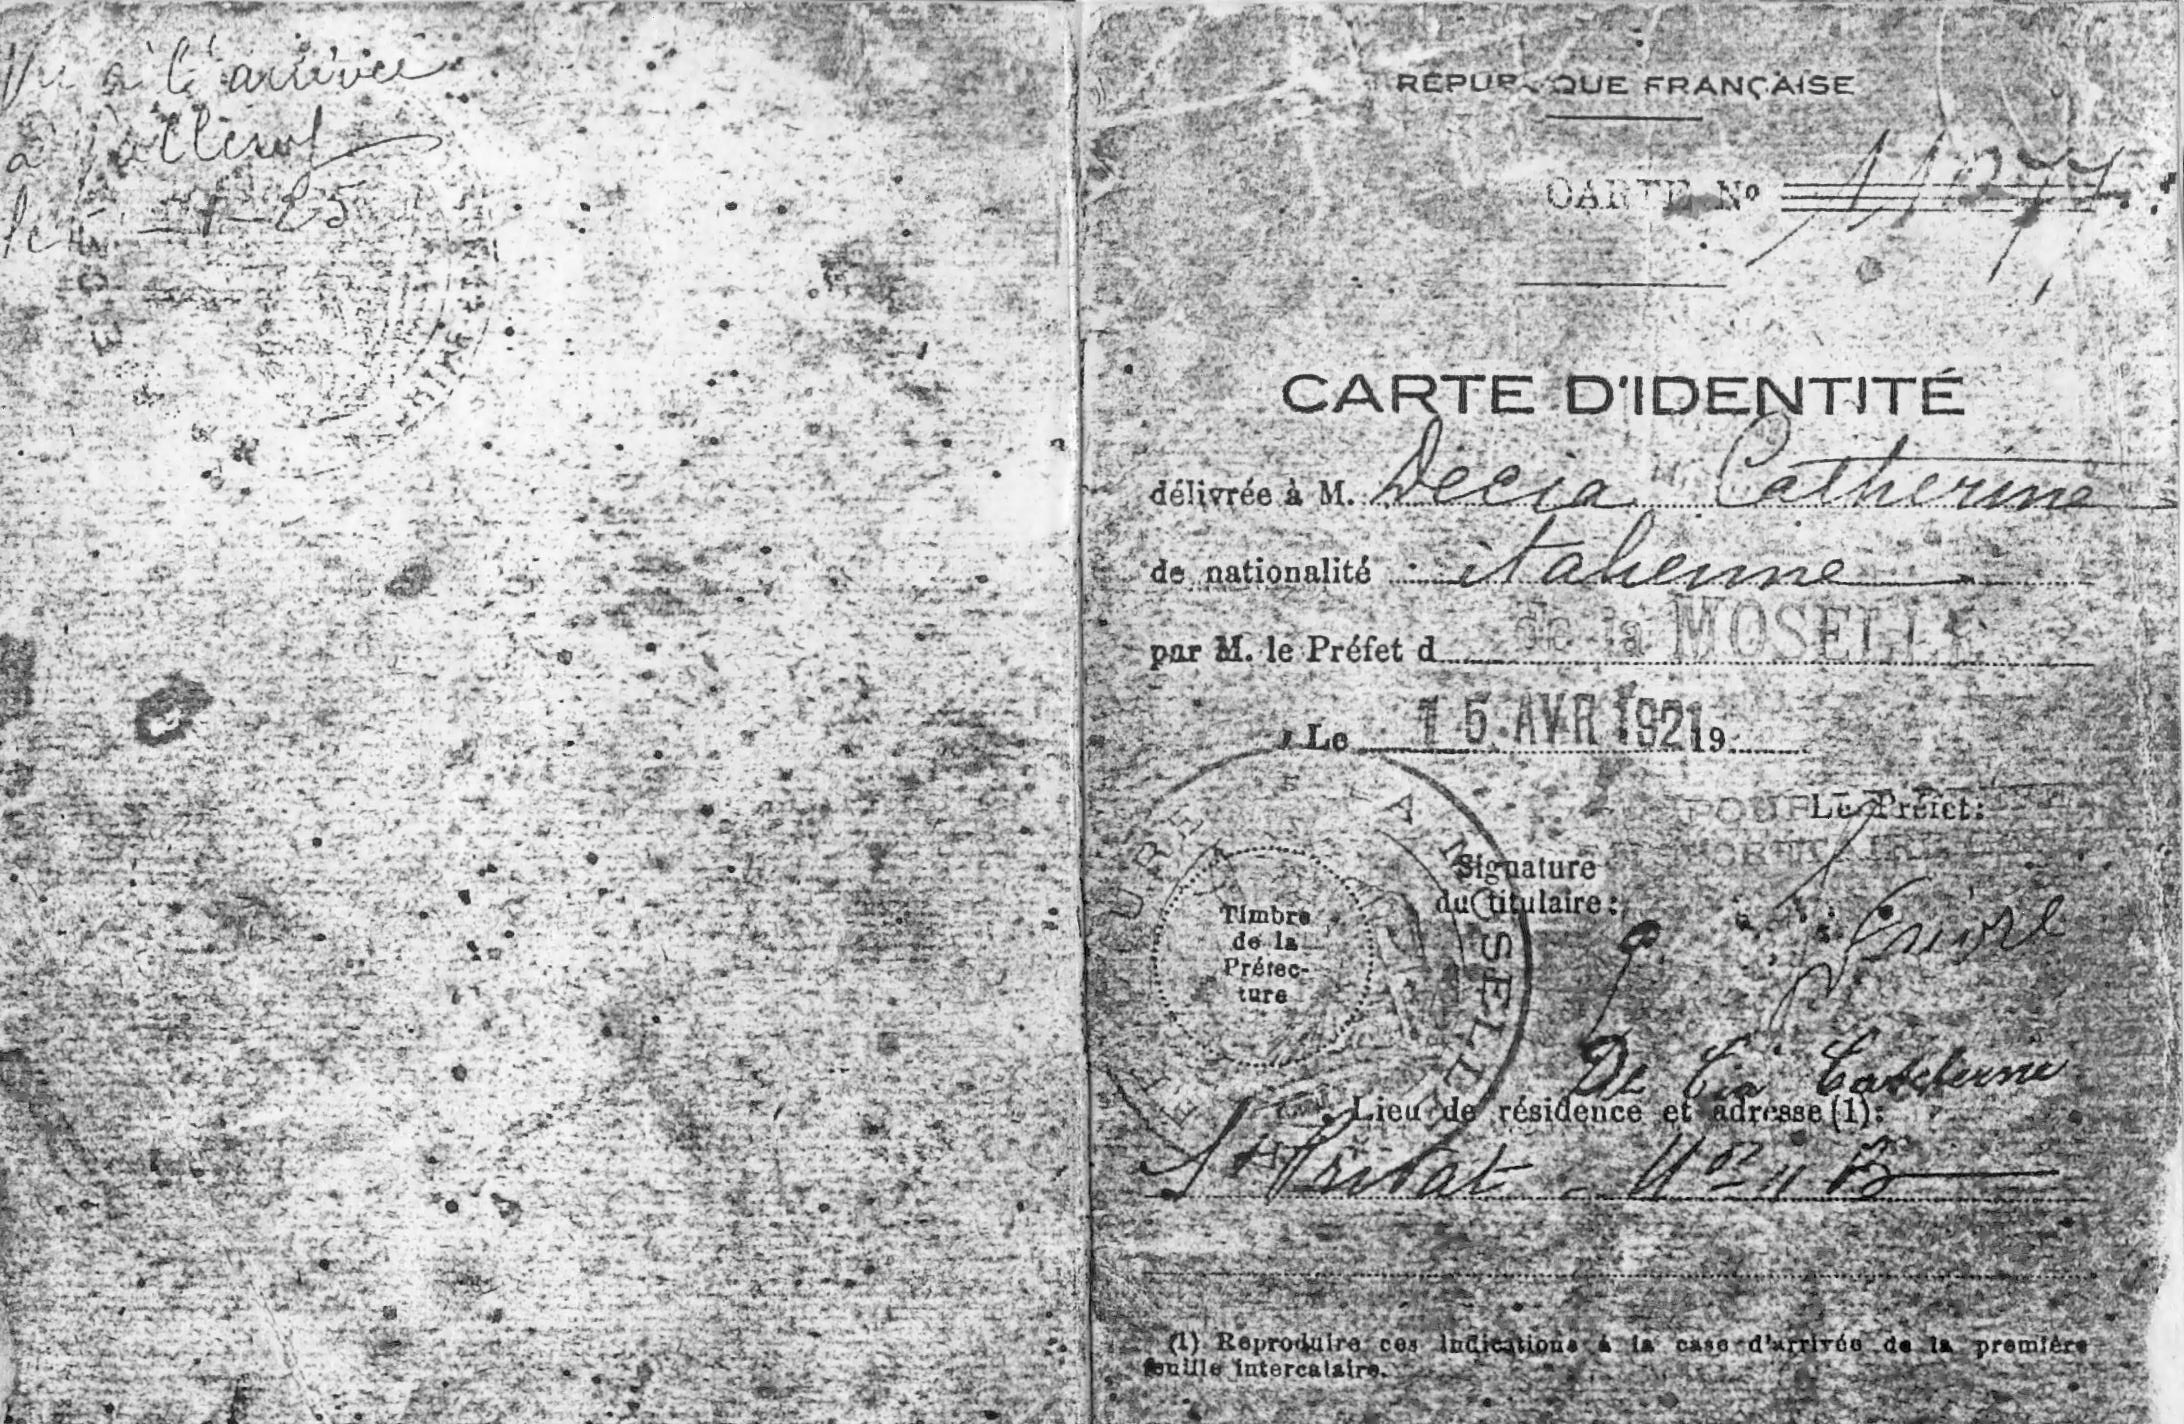 Vu à l'arrivée
à
le
RÉPUBLIQUE FRANÇAISE
CARTE Nº 11277
CARTE D'IDENTITÉ
délivrée à M. Decia Catherine
de nationalité italienne
par M. le Préfet d de la MOSELLE
, Le 15 AVR 1921 19
POUR Le Préfet:
Signature
du titulaire:
PRÉFECTURE DE LA MOSELLE
Timbre
de la
Préfec-
ture
De Cia Catherine
Lieu de résidence et adresse (1):
St Privat - Nº 11 B
(1) Reproduire ces indications à la case d'arrivée de la première
feuille intercalaire.